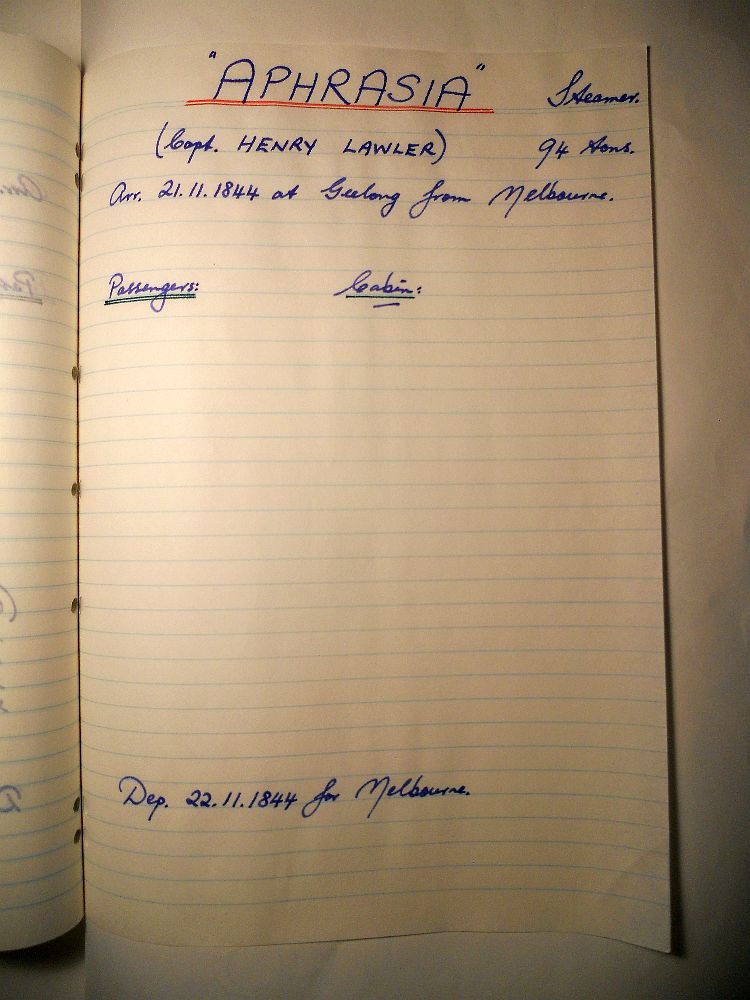 "APHRASIA" Steamer.
(Capt. HENRY LAWLER) 94 tons.
Arr. 21.11.1844 at Geelong from Melbourne.
Passengers: Cabin:
Dep. 22.11.1844 for Melbourne.